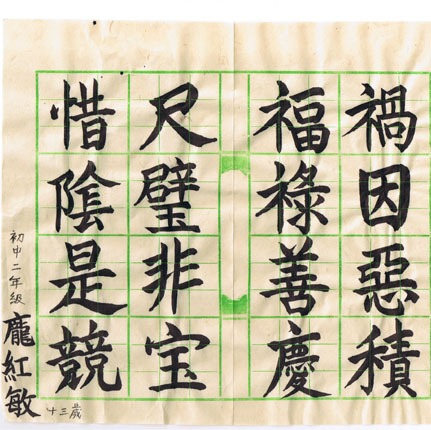 禍因惡積
福祿善慶
尺璧非宝
惜陰是競
初中二年級
龐紅敏
十三歲